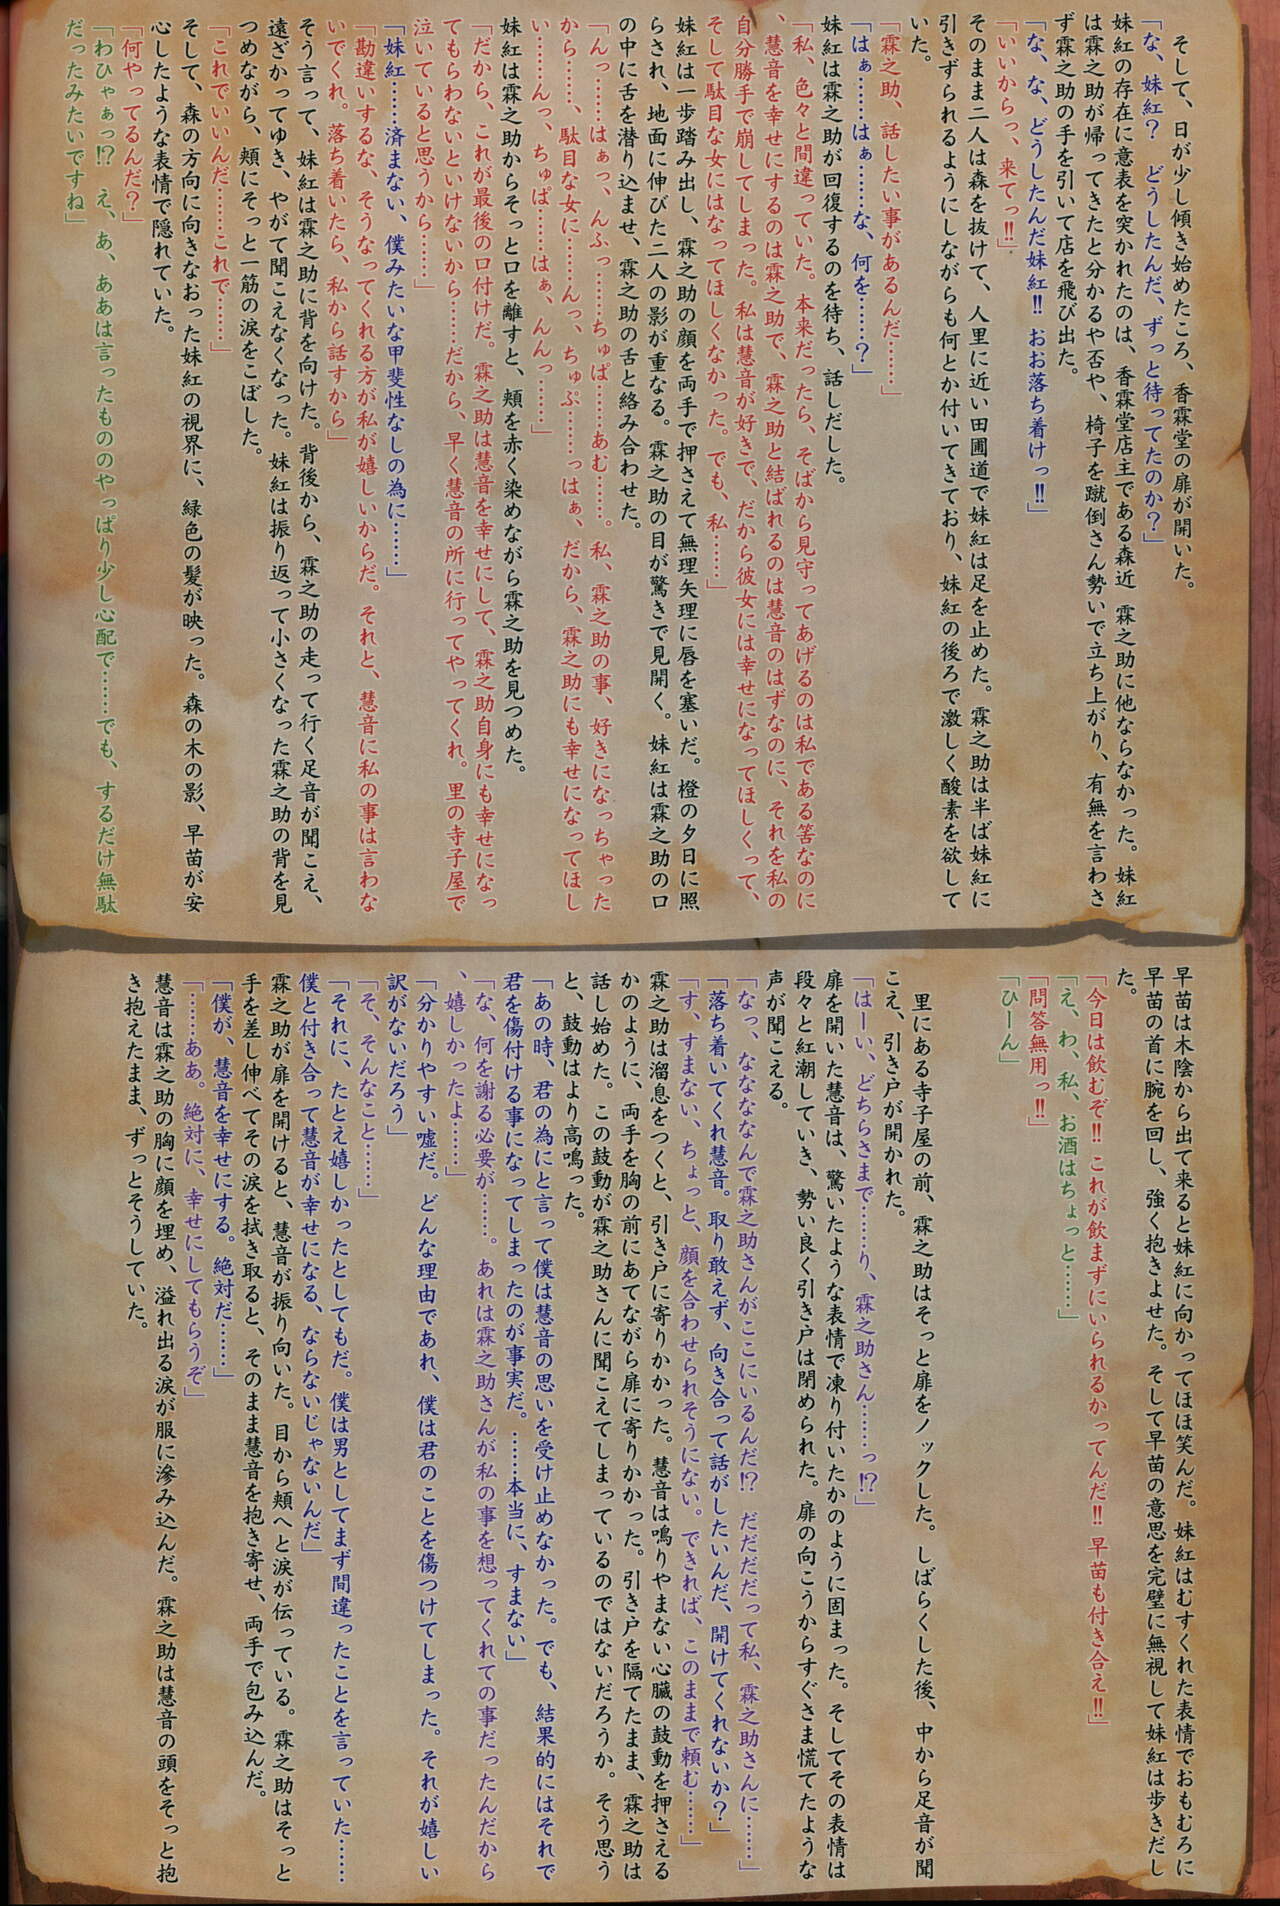 そして、日が少し傾き始めたころ、香霖堂の扉が開いた。
「な、妹紅？　どうしたんだ、ずっと待ってたのか？」
妹紅の存在に意表を突かれたのは、香霖堂店主である森近　霖之助に他ならなかった。妹紅
は霖之助が帰ってきたと分かるや否や、椅子を蹴倒さん勢いで立ち上がり、有無を言わさ
ず霖之助の手を引いて店を飛び出た。
「な、な、どうしたんだ妹紅!! おお落ち着けっ!!」
「いいからっ、来てっ!!」
そのまま二人は森を抜けて、人里に近い田圃道で妹紅は足を止めた。霖之助は半ば妹紅に
引きずられるようにしながらも何とか付いてきており、妹紅の後ろで激しく酸素を欲して
いた。
「霖之助、話したい事があるんだ……」
「はぁ……はぁ……な、何を……？」
妹紅は霖之助が回復するのを待ち、話しだした。
「私、色々と間違っていた。本来だったら、そばから見守ってあげるのは私である筈なのに
、慧音を幸せにするのは霖之助で、霖之助と結ばれるのは慧音のはずなのに、それを私の
自分勝手で崩してしまった。私は慧音が好きで、だから彼女には幸せになってほしくって、
そして駄目な女にはなってほしくなかった。でも、私……」
妹紅は一歩踏み出し、霖之助の顔を両手で押さえて無理矢理に唇を塞いだ。橙の夕日に照
らされ、地面に伸びた二人の影が重なる。霖之助の目が驚きで見開く。妹紅は霖之助の口
の中に舌を潜り込ませ、霖之助の舌と絡み合わせた。
「んっ……はぁっ、んふっ……ちゅぱ……あむ……。私、霖之助の事、好きになっちゃった
から……、駄目な女に……んっ、ちゅぷ……っはぁ、だから、霖之助にも幸せになってほし
い……んっ、ちゅぱ……はぁ、んんっ……」
妹紅は霖之助からそっと口を離すと、頬を赤く染めながら霖之助を見つめた。
「だから、これが最後の口付けだ。霖之助は慧音を幸せにして、霖之助自身にも幸せになっ
てもらわないといけないから……だから、早く慧音の所に行ってやってくれ。里の寺子屋で
泣いていると思うから……」
「妹紅……済まない、僕みたいな甲斐性なしの為に……」
「勘違いするな、そうなってくれる方が私が嬉しいからだ。それと、慧音に私の事は言わな
いでくれ。落ち着いたら、私から話すから」
そう言って、妹紅は霖之助に背を向けた。背後から、霖之助の走って行く足音が聞こえ、
遠ざかってゆき、やがて聞こえなくなった。妹紅は振り返って小さくなった霖之助の背を見
つめながら、頬にそっと一筋の涙をこぼした。
「これでいいんだ……これで……」
そして、森の方向に向きなおった妹紅の視界に、緑色の髪が映った。森の木の影、早苗が安
心したような表情で隠れていた。
「何やってるんだ？」
「わひゃぁっ!? え、あ、ああは言ったもののやっぱり少し心配で……でも、するだけ無駄
だったみたいですね」
早苗は木陰から出て来ると妹紅に向かってほほ笑んだ。妹紅はむすくれた表情でおもむろに
早苗の首に腕を回し、強く抱きよせた。そして早苗の意思を完璧に無視して妹紅は歩きだし
た。
「今日は飲むぞ!! これが飲まずにいられるかってんだ!! 早苗も付き合え!!」
「え、わ、私、お酒はちょっと……」
「問答無用っ!!」
「ひーん」
里にある寺子屋の前、霖之助はそっと扉をノックした。しばらくした後、中から足音が聞
こえ、引き戸が開かれた。
「はーい、どちらさまで……り、霖之助さん……っ!?」
扉を開いた慧音は、驚いたような表情で凍り付いたかのように固まった。そしてその表情は
段々と紅潮していき、勢い良く引き戸は閉められた。扉の向こうからすぐさま慌てたような
声が聞こえる。
「なっ、なななんで霖之助さんがここにいるんだ!?　だだだだって私、霖之助さんに……」
「落ち着いてくれ慧音。取り敢えず、向き合って話がしたいんだ、開けてくれないか？」
「す、すまない、ちょっと、顔を合わせられそうにない。できれば、このままで頼む……」
霖之助は溜息をつくと、引き戸に寄りかかった。慧音は鳴りやまない心臓の鼓動を押さえる
かのように、両手を胸の前にあてながら扉に寄りかかった。引き戸を隔てたまま、霖之助は
話し始めた。この鼓動が霖之助さんに聞こえてしまっているのではないだろうか。そう思う
と、鼓動はより高鳴った。
「あの時、君の為にと言って僕は慧音の思いを受け止めなかった。でも、結果的にはそれで
君を傷付ける事になってしまったのが事実だ。……本当に、すまない」
「な、何を謝る必要が……。あれは霖之助さんが私の事を想ってくれての事だったんだから
、嬉しかったよ……」
「分かりやすい嘘だ。どんな理由であれ、僕は君のことを傷つけてしまった。それが嬉しい
訳がないだろう」
「そ、そんなこと……」
「それに、たとえ嬉しかったとしてもだ。僕は男としてまず間違ったことを言っていた……
僕と付き合って慧音が幸せになる、ならないじゃないんだ」
霖之助が扉を開けると、慧音が振り向いた。目から頬へと涙が伝っている。霖之助はそっと
手を差し伸べてその涙を拭き取ると、そのまま慧音を抱き寄せ、両手で包み込んだ。
「僕が、慧音を幸せにする。絶対だ……」
「……ああ。絶対に、幸せにしてもらうぞ」
慧音は霖之助の胸に顔を埋め、溢れ出る涙が服に滲み込んだ。霖之助は慧音の頭をそっと抱
き抱えたまま、ずっとそうしていた。